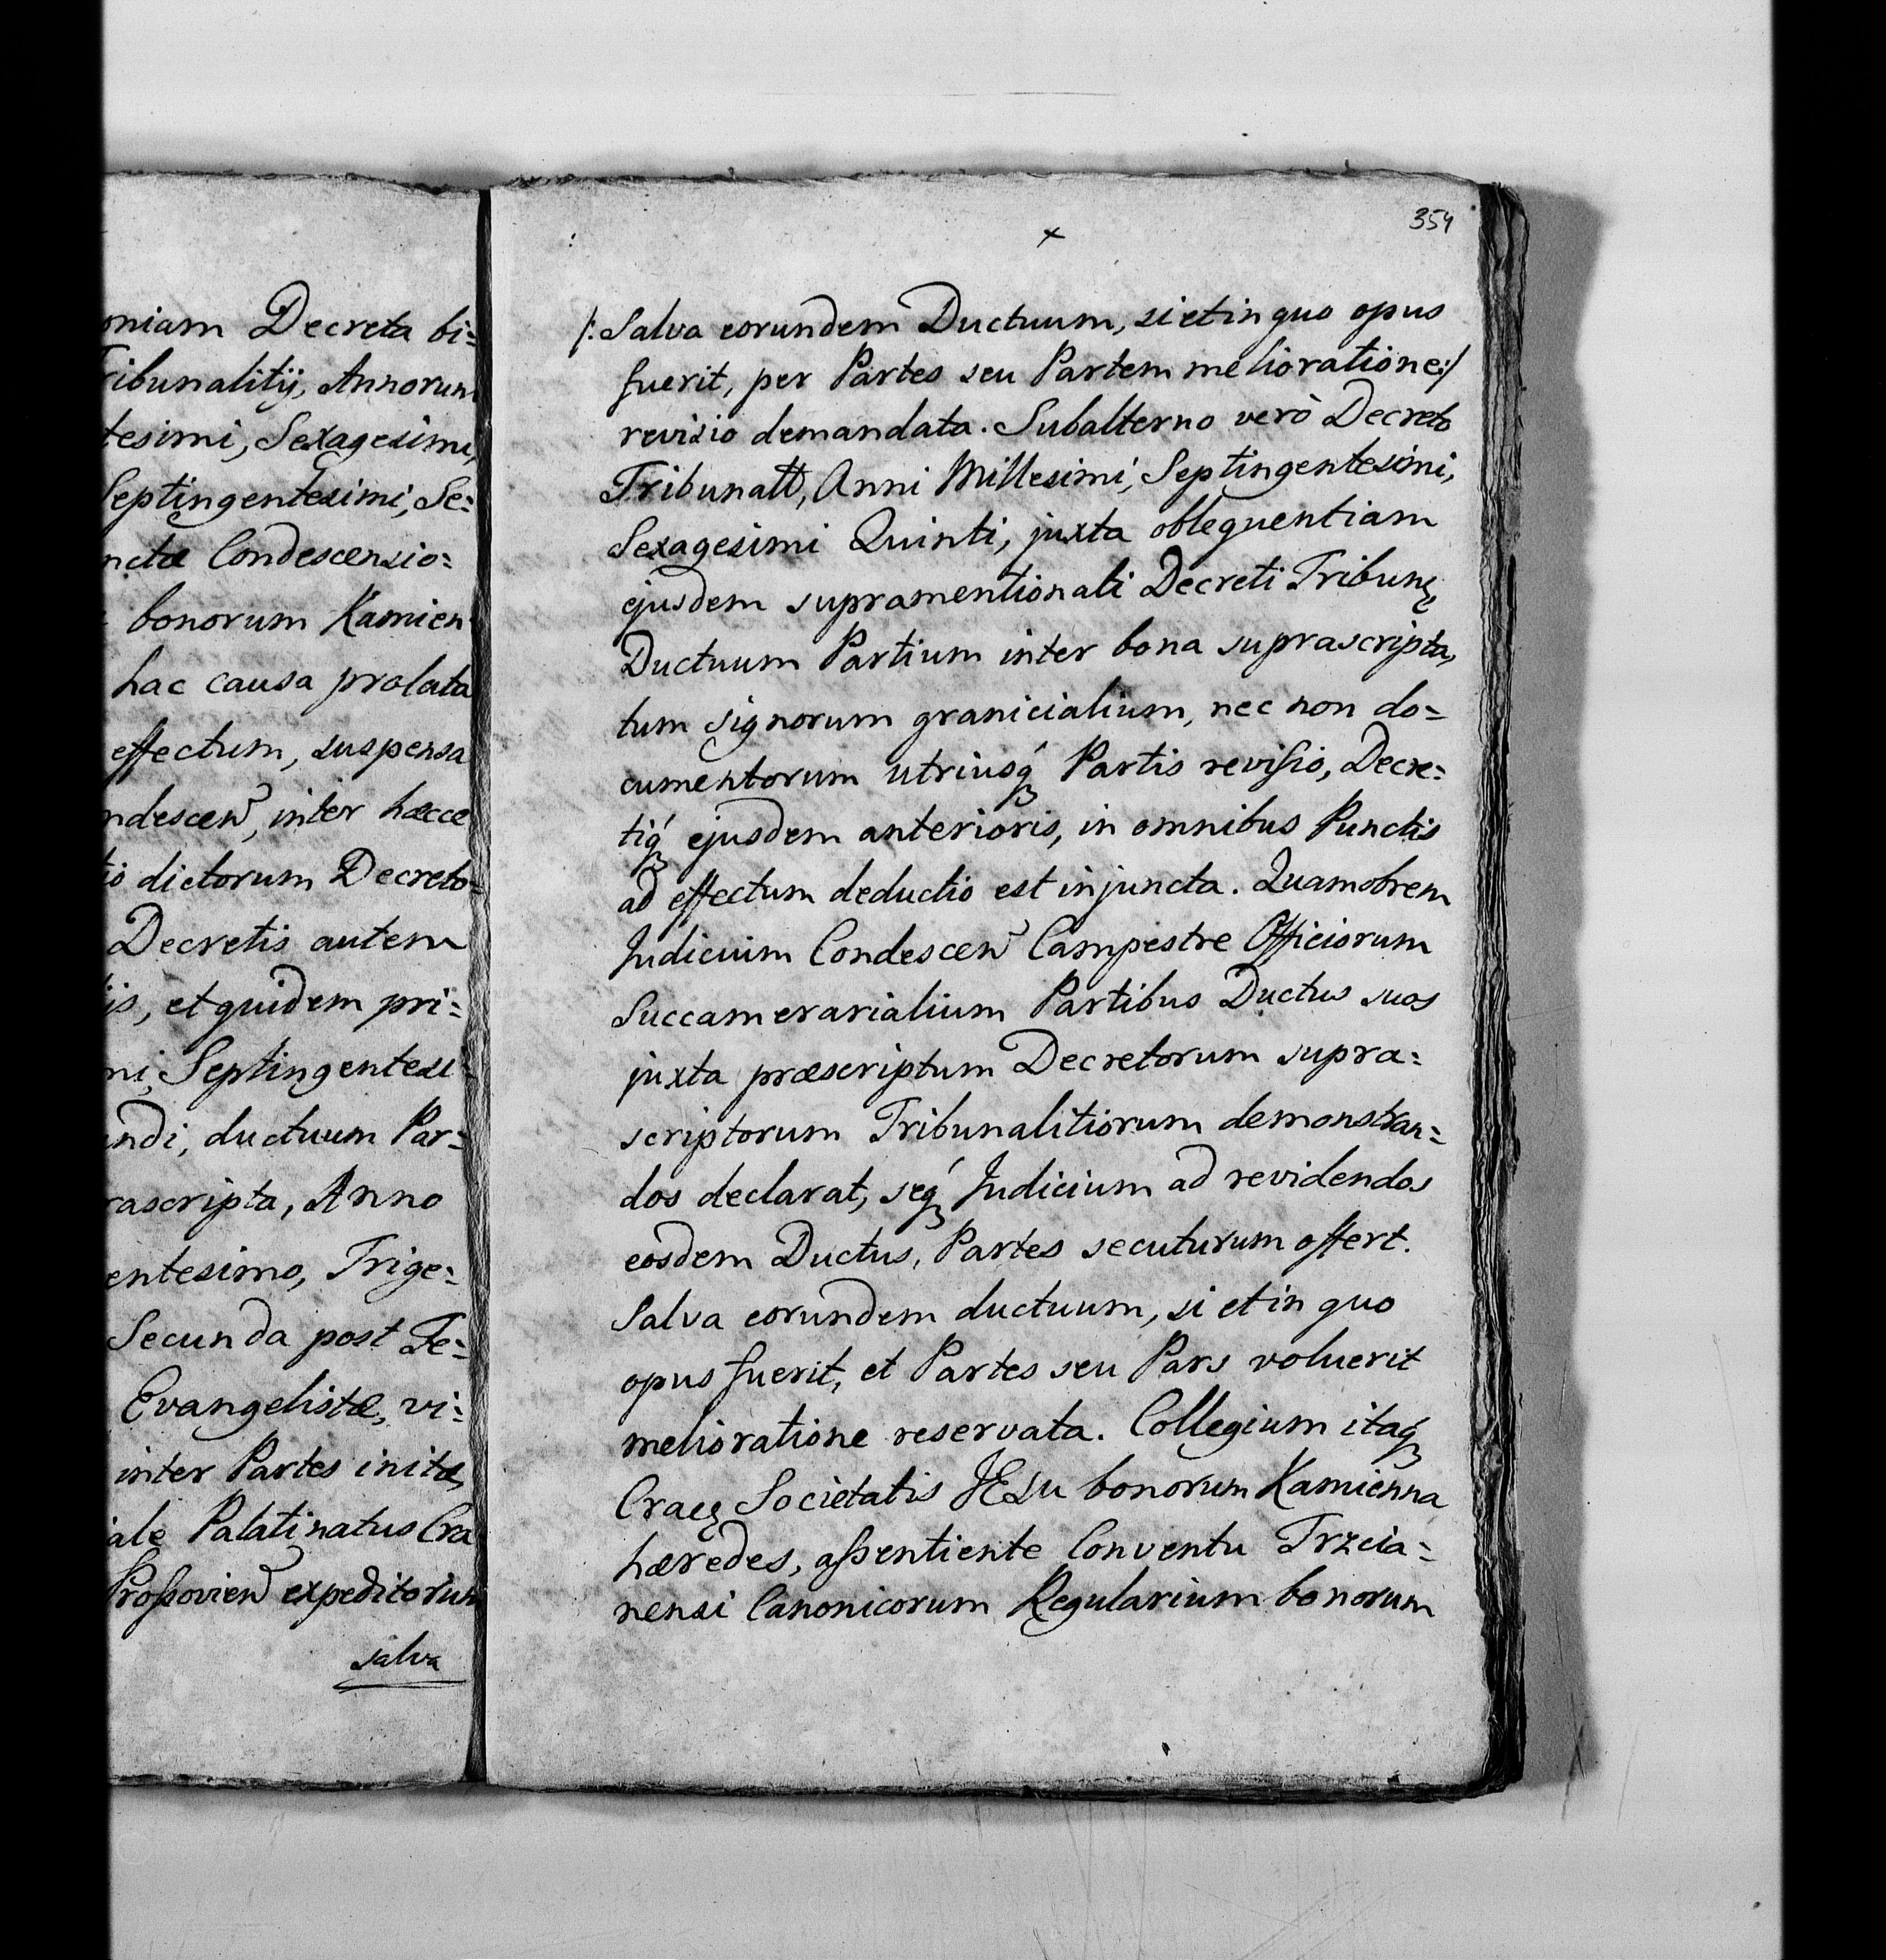 oniam Decreta bi=
ribunalitij, Annorum
tesimi, Sexagesimi,
Septingentesimi, Se=
nctæ Condescensio=
bonorum Kamien
hac causa prolata
effectum, suspensa
ndescen, inter hæcce
dictorum Decreto=
Decretis autem
ijs, et quidem pri=
ni, Septingentesi
undi, ductuum Par=
rascripta, Anno
entesimo, Trige=
Secunda post Fe=
Evangelistæ, vi=
inter Partes initæ,
iale Palatinatus Cra
Proßovien expeditorium
salva
354
x
/: Salva eorundem Ductuum, si et in quo opus
fuerit, per Partes seu Partem melioratione :/
revisio demandata. Subalterno verò Decreto
Tribunalt, Anni Millesimi, Septingentesimi,
Sexagesimi Quinti, juxta oblequentiam
ejusdem supramentionati Decreti Tribunę,
Ductuum Partium inter bona suprascripta,
tum signorum granicialium, nec non do=
cumentorum utriusq́ Partis revisio, Decre=
tiq́ ejusdem anterioris, in omnibus Punctis
ad effectum deductio est injuncta. Quamobrem
Judicium Condescen Campestre Officiorum
Succamerarialium Partibus Ductus suos
juxta præscriptum Decretorum supra=
scriptorum Tribunalitiorum demonstran=
dos declarat, seq́ Judicium ad revidendos
eosdem Ductus, Partes secuturum offert.
Salva eorundem ductuum, si et in quo
opus fuerit, et Partes seu Pars voluerit
melioratione reservata. Collegium itaq́
Cracę Societatis JEsu bonorum Kamienna
hæredes, aßentiente Conventu Trzcia=
nensi Canonicorum Regularium bonorum